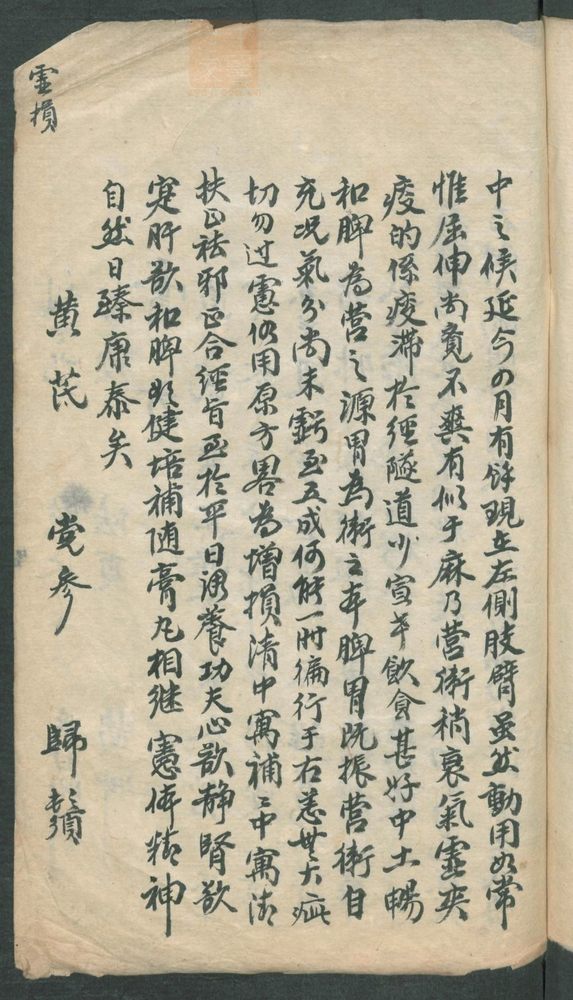 虛損
中之候延今四月有餘現在左側肢臂虽然動用如常
惟屈伸尚覺不爽有似于麻乃營衛稍衰氣虛夾
痰的係痰滯於經隧道少宣幸飲食甚好中土暢
和脾為營之源胃為衛之本脾胃既振營衛自
充况氣分尚未虧至五成何能一时偏行于右恙無大疵
切勿过慮仍用原方畧為增損清中寓補補中寓清
扶正祛邪正合經旨至於平日調養功夫心欲静腎欲
寔肝欲和脾欲健培補随膏丸相继憲体精神
自然日臻康泰矣
黄芪 党參 歸鬚